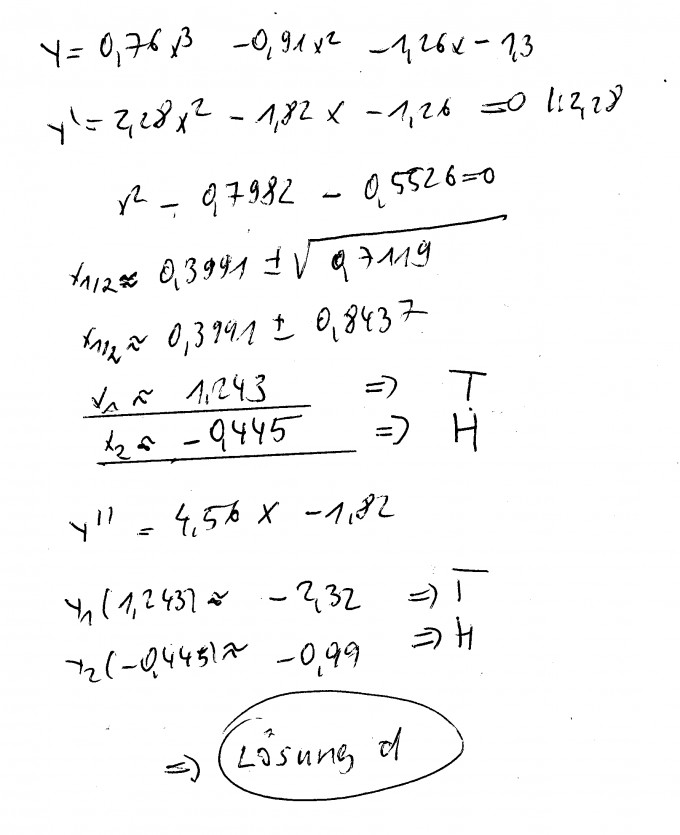 y = 0,76x³ -0,91x² -1,26x - 1,3
y' = 2,28x² - 1,82x - 1,26 = 0 |:2,28
x² - 0,7982 - 0,5526=0
x1/2 ≈ 0,3991 ± √0,7119
x1/2 ≈ 0,3991 ± 0,8437
x1 ≈ 1,243 => T
x2 ≈ -0,445 => H
y'' = 4,56x - 1,82
y1(1,243) ≈ -2,32 => T
y2(-0,445) ≈ -0,99 => H
=> Lösung d